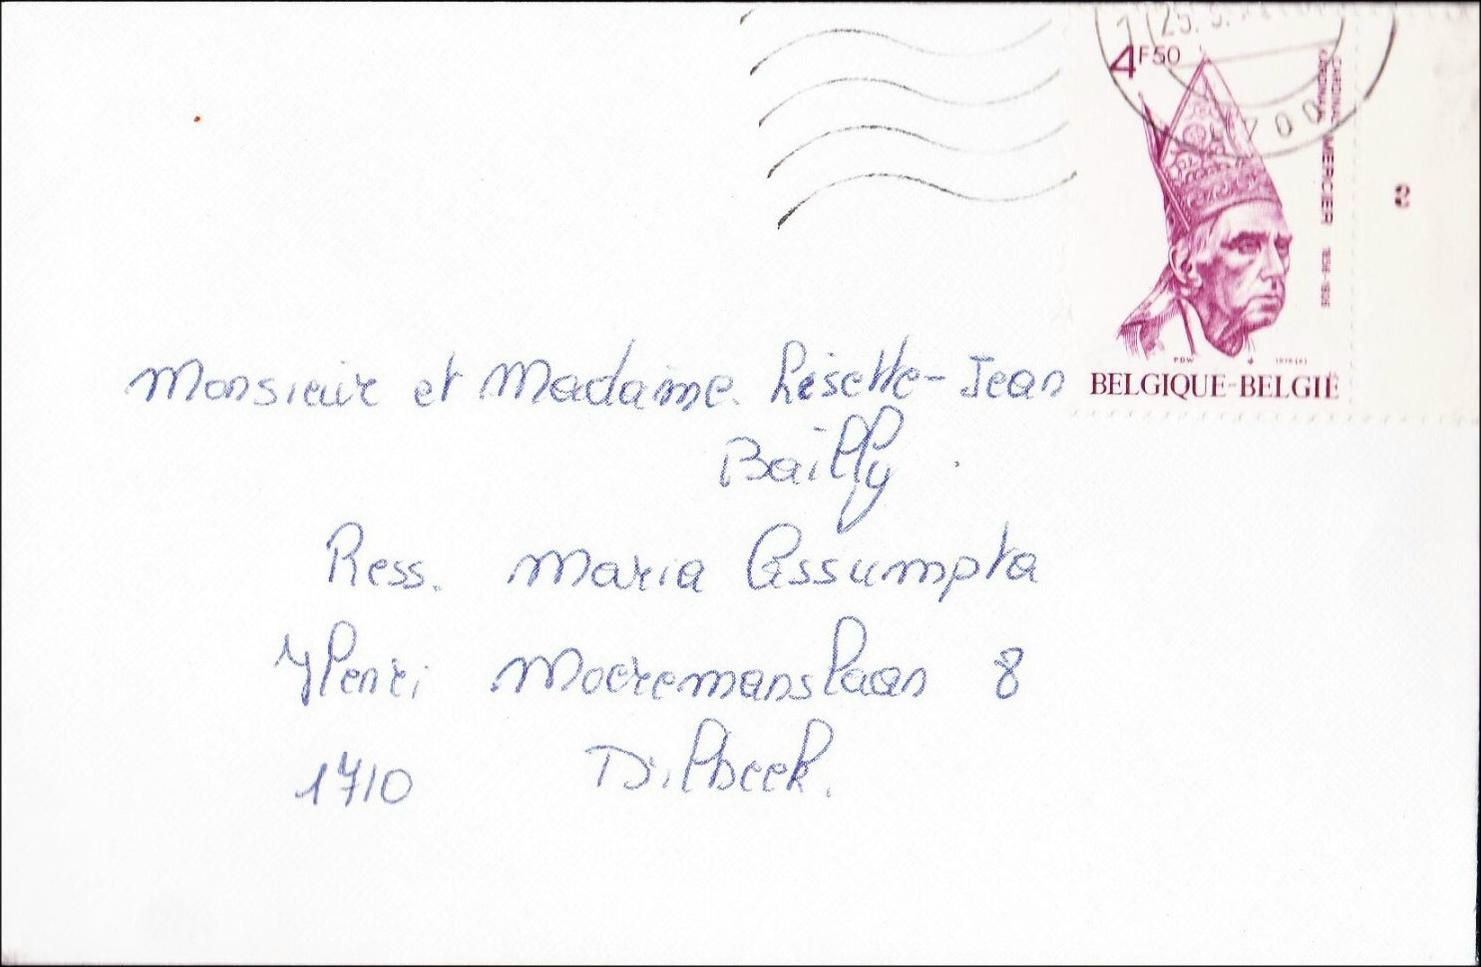 4F50
CARDINAL MERCIER 1851-1926
KARDINAAL
700
2
PDW
BELGIQUE-BELGIË
Monsieur et Madame Lisette-Jean
Bailly
Ress. Maria Assumpta
Henri Moeremanslaan 8
1710 Dilbeek.